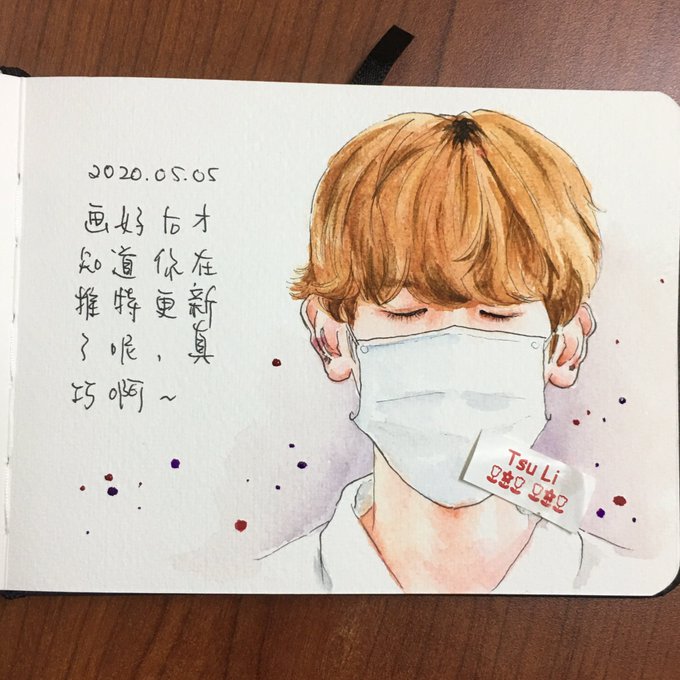 2020.05.05
画好后才
知道你在
推特更新
了呢，真
巧啊～
Tsu Li